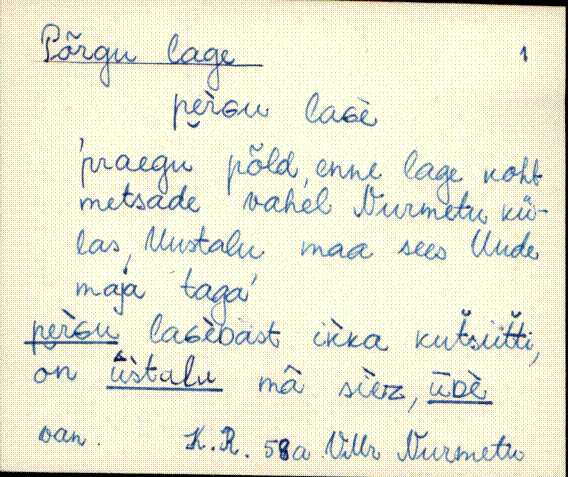 Põrgu lage 1
pe̮rɢu laɢè
'praegu põld, enne lage koht
metsade vahel Nurmetu kü-
las, Uustalu maa sees Uude
maja taga'
pe̮rɢu laɢèᴅast ikka kutsiitti,
on ūstalu mā siez, ūᴅè
van. K.R. 58a Villr Nurmetu